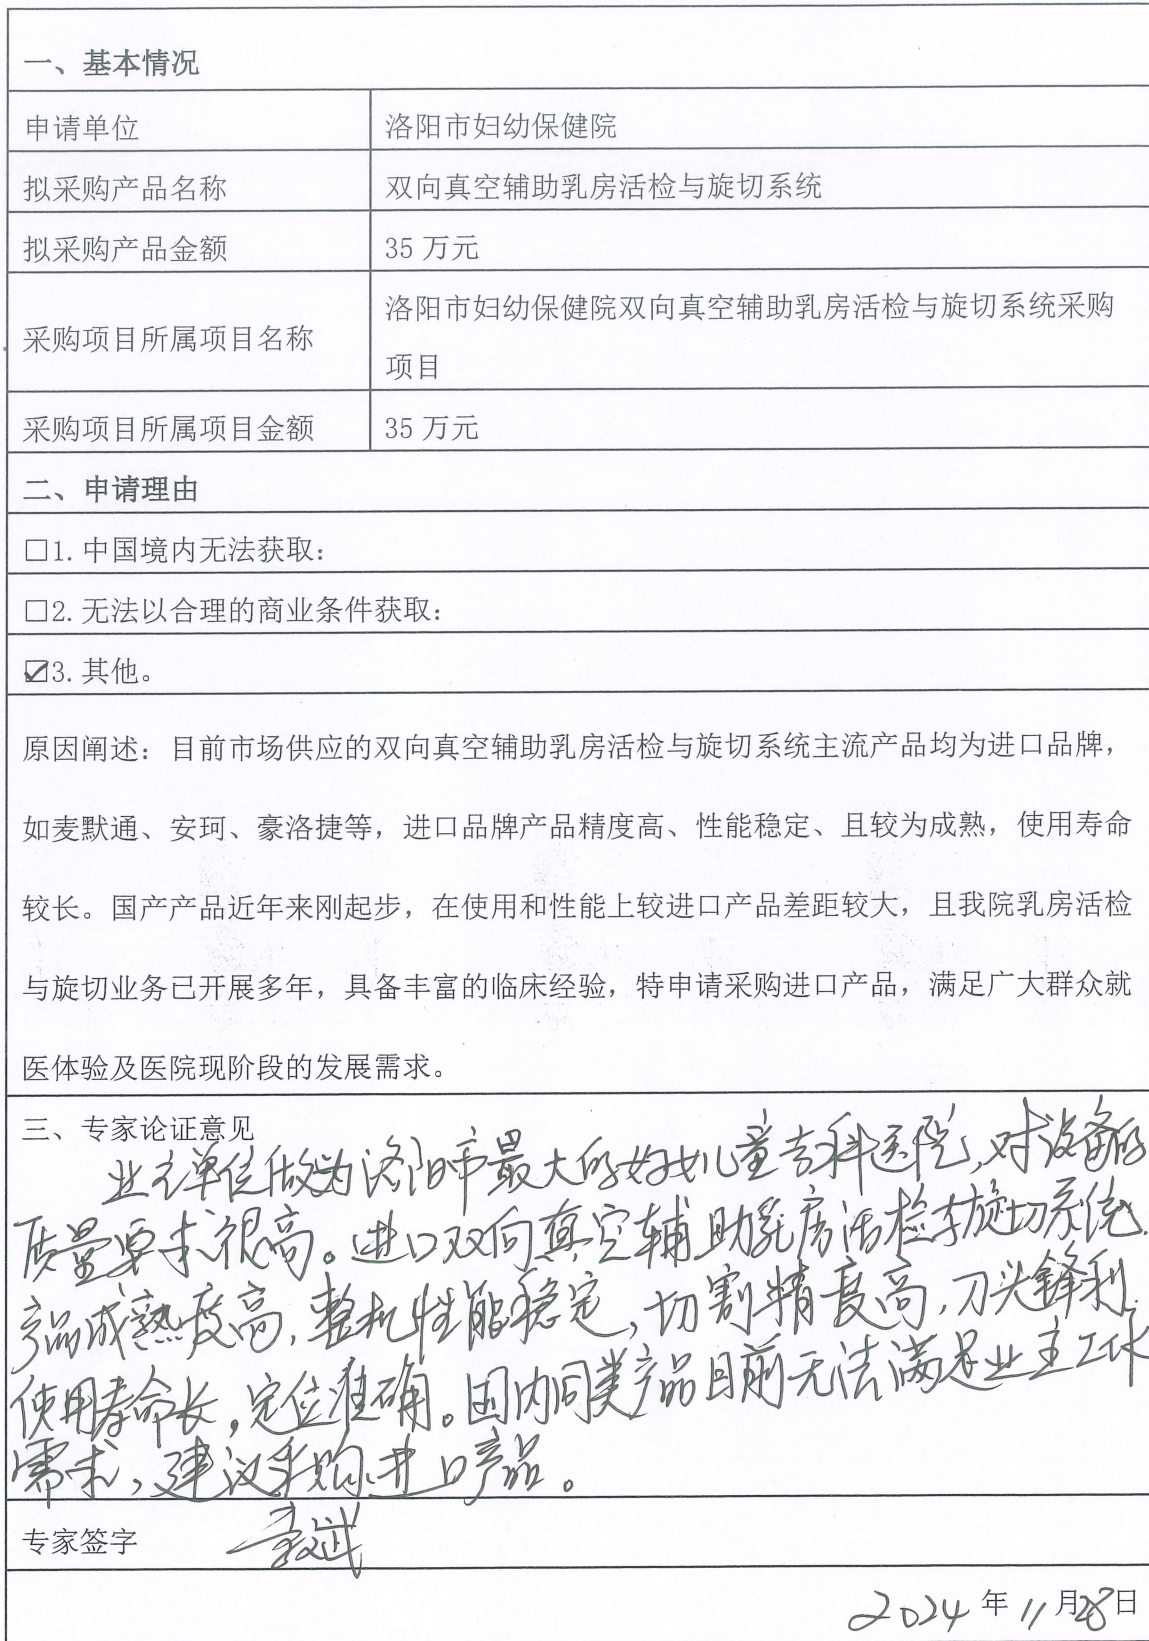 一、基本情况
申请单位 洛阳市妇幼保健院
拟采购产品名称 双向真空辅助乳房活检与旋切系统
拟采购产品金额 35 万元
采购项目所属项目名称 洛阳市妇幼保健院双向真空辅助乳房活检与旋切系统采购
项目
采购项目所属项目金额 35 万元
二、申请理由
☐1. 中国境内无法获取：
☐2. 无法以合理的商业条件获取：
☑3. 其他。
原因阐述：目前市场供应的双向真空辅助乳房活检与旋切系统主流产品均为进口品牌，
如麦默通、安珂、豪洛捷等，进口品牌产品精度高、性能稳定、且较为成熟，使用寿命
较长。国产产品近年来刚起步，在使用和性能上较进口产品差距较大，且我院乳房活检
与旋切业务已开展多年，具备丰富的临床经验，特申请采购进口产品，满足广大群众就
医体验及医院现阶段的发展需求。
三、专家论证意见
业主单位做为洛阳市最大的妇女儿童专科医院，对设备的
质量要求很高。进口双向真空辅助乳房活检与旋切系统.
产品成熟度高，整机性能稳定，切割精度高，刀头锋利.
使用寿命长，定位准确。国内同类产品目前无法满足业主工作
需求，建议采购进口产品。
专家签字
2024 年 11 月 28 日